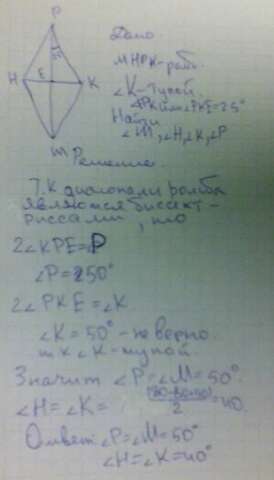 P
Дано
МНРК-ромб.
H
E
K
∠K-тупой.
∠PKE=25°
Найти
∠M, ∠H, ∠K, ∠P
m
Решение.
Т.к диагонали ромба
являются биссект-
риссами, то
2∠KPE=∠P
∠P=250°
2∠PKE=∠K
∠K=50°-неверно.
т к ∠K-тупой.
Значит ∠P=∠M=50°.
∠H=∠K= 2 =40.
Ответ: ∠P=∠M=50°
∠H=∠K=40°